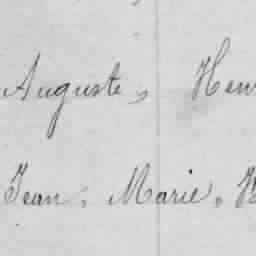 Auguste,
Jean, Marie,